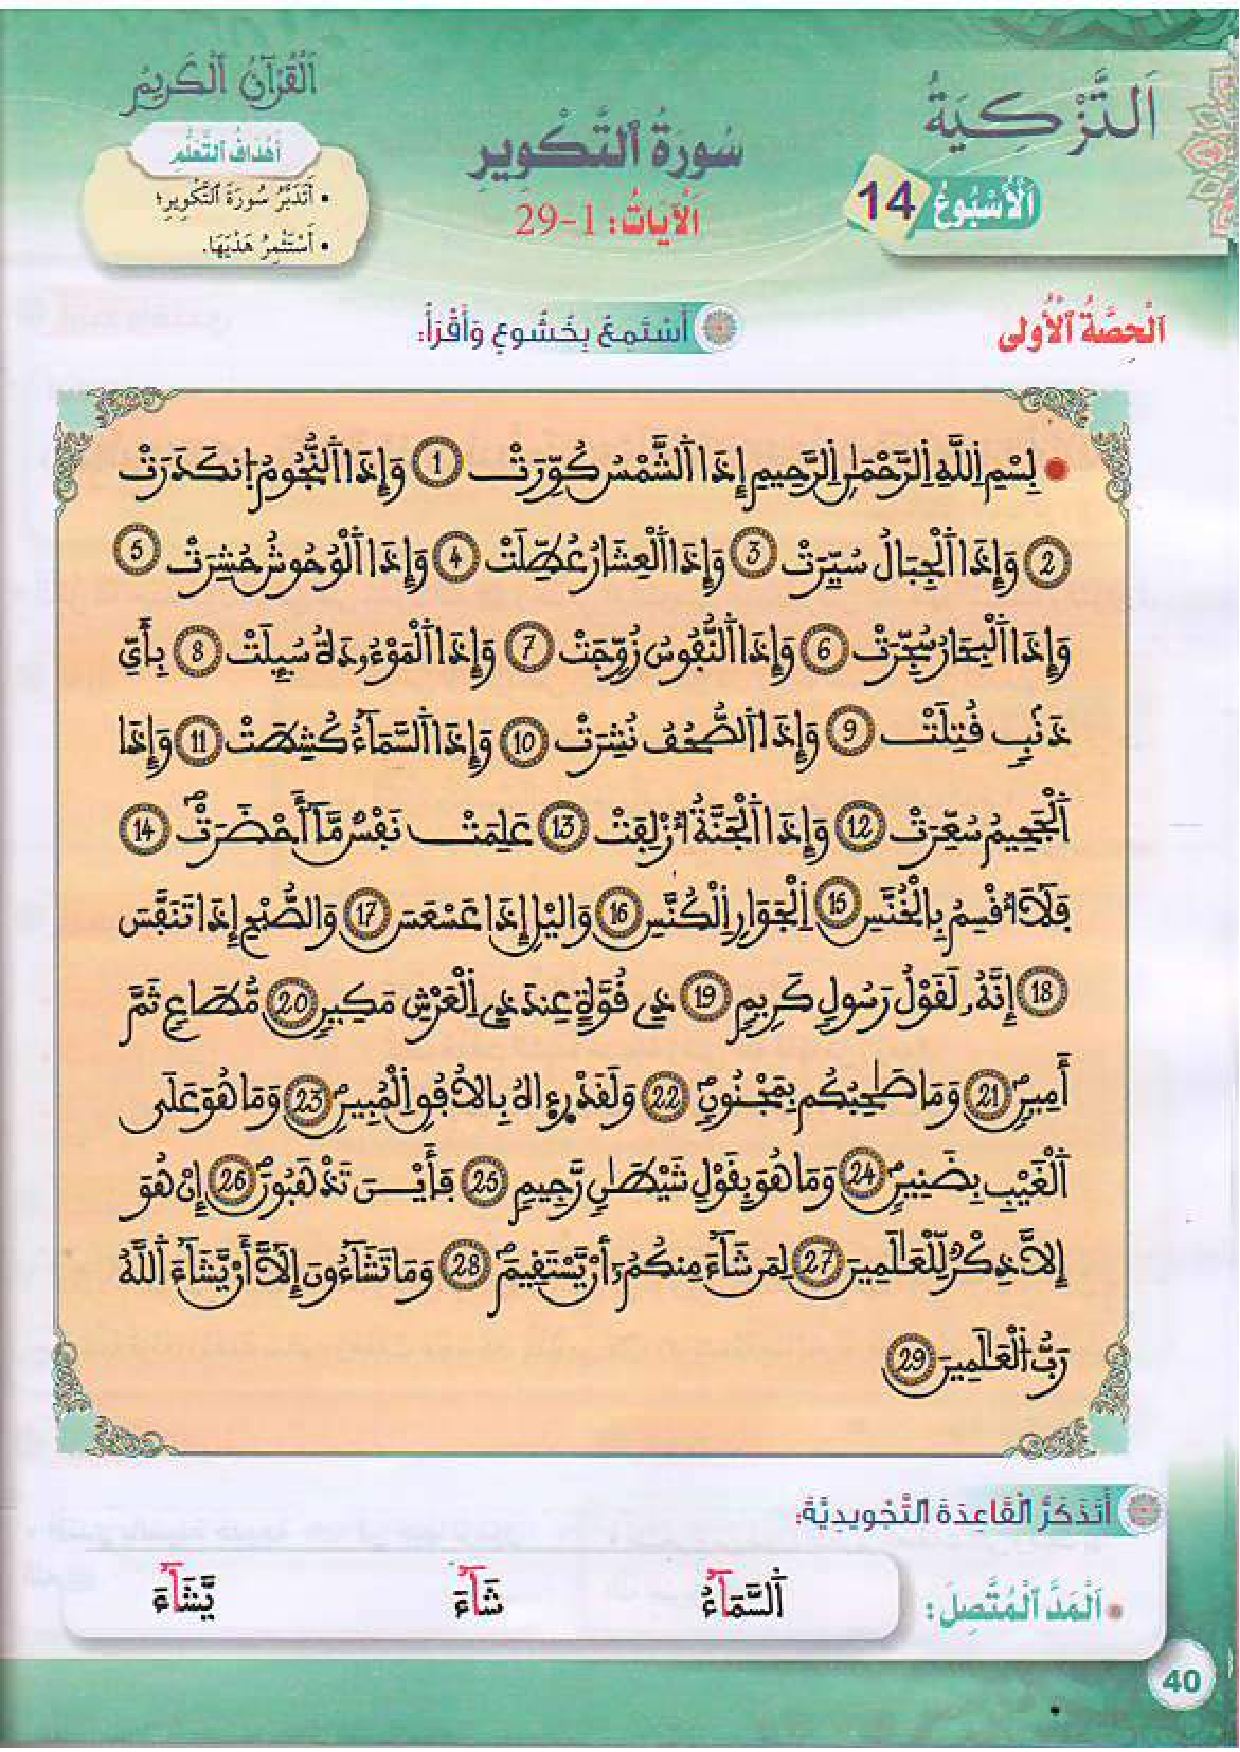 اَلْقُرْآنُ اَلْكَرِيمُ
اَلتَّزْكِيَةُ
سُورَةُ اَلتَّكْوِيرِ
أَهْدَافُ اَلتَّعَلُّمِ
اَلْأُسْبُوعُ 14
اَلْآيَاتُ: 1-29
• أَتَدَبَّرُ سُورَةَ اَلتَّكْوِيرِ؛
• أَسْتَثْمِرُ هَدْيَهَا.
اَلْحِصَّةُ اَلْأُولَى
أَسْتَمِعُ بِخُشُوعٍ وَأَقْرَأُ:
بِسْمِ اِللَّهِ اِلرَّحْمَٰنِ اِلرَّحِيمِ إِذَا اَلشَّمْسُ كُوِّرَتْ 1 وَإِذَا اَلنُّجُومُ اُنكَدَرَتْ
2 وَإِذَا اَلْجِبَالُ سُيِّرَتْ 3 وَإِذَا اَلْعِشَارُ عُطِّلَتْ 4 وَإِذَا اَلْوُحُوشُ حُشِرَتْ 5
وَإِذَا اَلْبِحَارُ سُجِّرَتْ 6 وَإِذَا اَلنُّفُوسُ زُوِّجَتْ 7 وَإِذَا اَلْمَوْءُۥدَةُ سُئِلَتْ 8 بِأَيِّ
ذَنۢبٖ قُتِلَتْ 9 وَإِذَا اَلصُّحُفُ نُشِرَتْ 10 وَإِذَا اَلسَّمَآءُ كُشِطَتْ 11 وَإِذَا
اَلْجَحِيمُ سُعِّرَتْ 12 وَإِذَا اَلْجَنَّةُ أُزْلِفَتْ 13 عَلِمَتْ نَفْسٞ مَّآ أَحْضَرَتْ 14
فَلَآ أُقْسِمُ بِالْخُنَّسِ 15 اِلْجَوَارِ اِلْكُنَّسِ 16 وَاليْلِ إِذَا عَسْعَسَ 17 وَالصُّبْحِ إِذَا تَنَفَّسَ
18 إِنَّهُۥ لَقَوْلُ رَسُولٖ كَرِيمٖ 19 ذِے قُوَّةٍ عِندَ ذِے اِلْعَرْشِ مَكِينٖ 20 مُّطَاعٖ ثَمَّ
أَمِينٖ 21 وَمَا صَٰحِبُكُم بِمَجْنُونٖ 22 وَلَقَدْ رِءٰاهُ بِالُافُقِ اِلْمُبِينِ 23 وَمَا هُوَ عَلَى
اَلْغَيْبِ بِضَنِينٖ 24 وَمَا هُوَ بِقَوْلِ شَيْطَٰنٖ رَّجِيمٖ 25 فَأَيْنَ تَذْهَبُونَ 26 إِنْ هُوَ
إِلَّا ذِكْرٞ لِّلْعَٰلَمِينَ 27 لِمَن شَآءَ مِنكُمُۥٓ أَنْ يَّسْتَقِيمَ 28 وَمَا تَشَآءُونَ إِلَّآ أَنْ يَّشَآءَ اَللَّهُ
رَبُّ اُلْعَٰلَمِينَ 29
أَتَذَكَّرُ اَلْقَاعِدَةَ اَلتَّجْوِيدِيَّةَ:
• اَلْمَدُّ اَلْمُتَّصِلُ: اَلسَّمَآءُ شَآءَ يَّشَآءَ
40